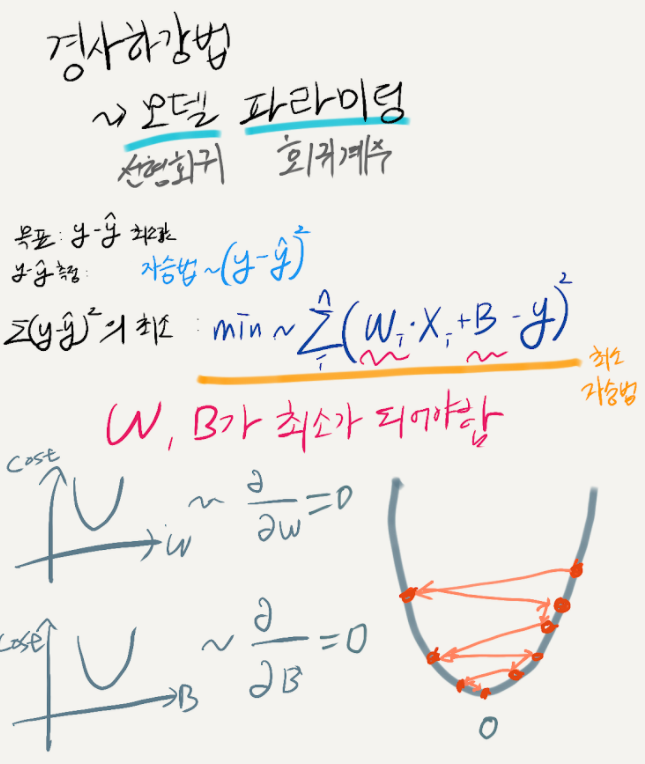 경사하강법
~> 모델 파라미텅
선형회귀 회귀계수
목표 : y-ŷ 최소값
y-ŷ 측정 : 자승법 ~ (y-ŷ)²
Σ(y-ŷ)²의 최소 : min ~ Σⁿᵢ (Wᵢ·Xᵢ+B-y)²
최소
자승법
W, B가 최소가 되어야함
cost
W ~ ∂/∂W = 0
cost
B ~ ∂/∂B = 0
0